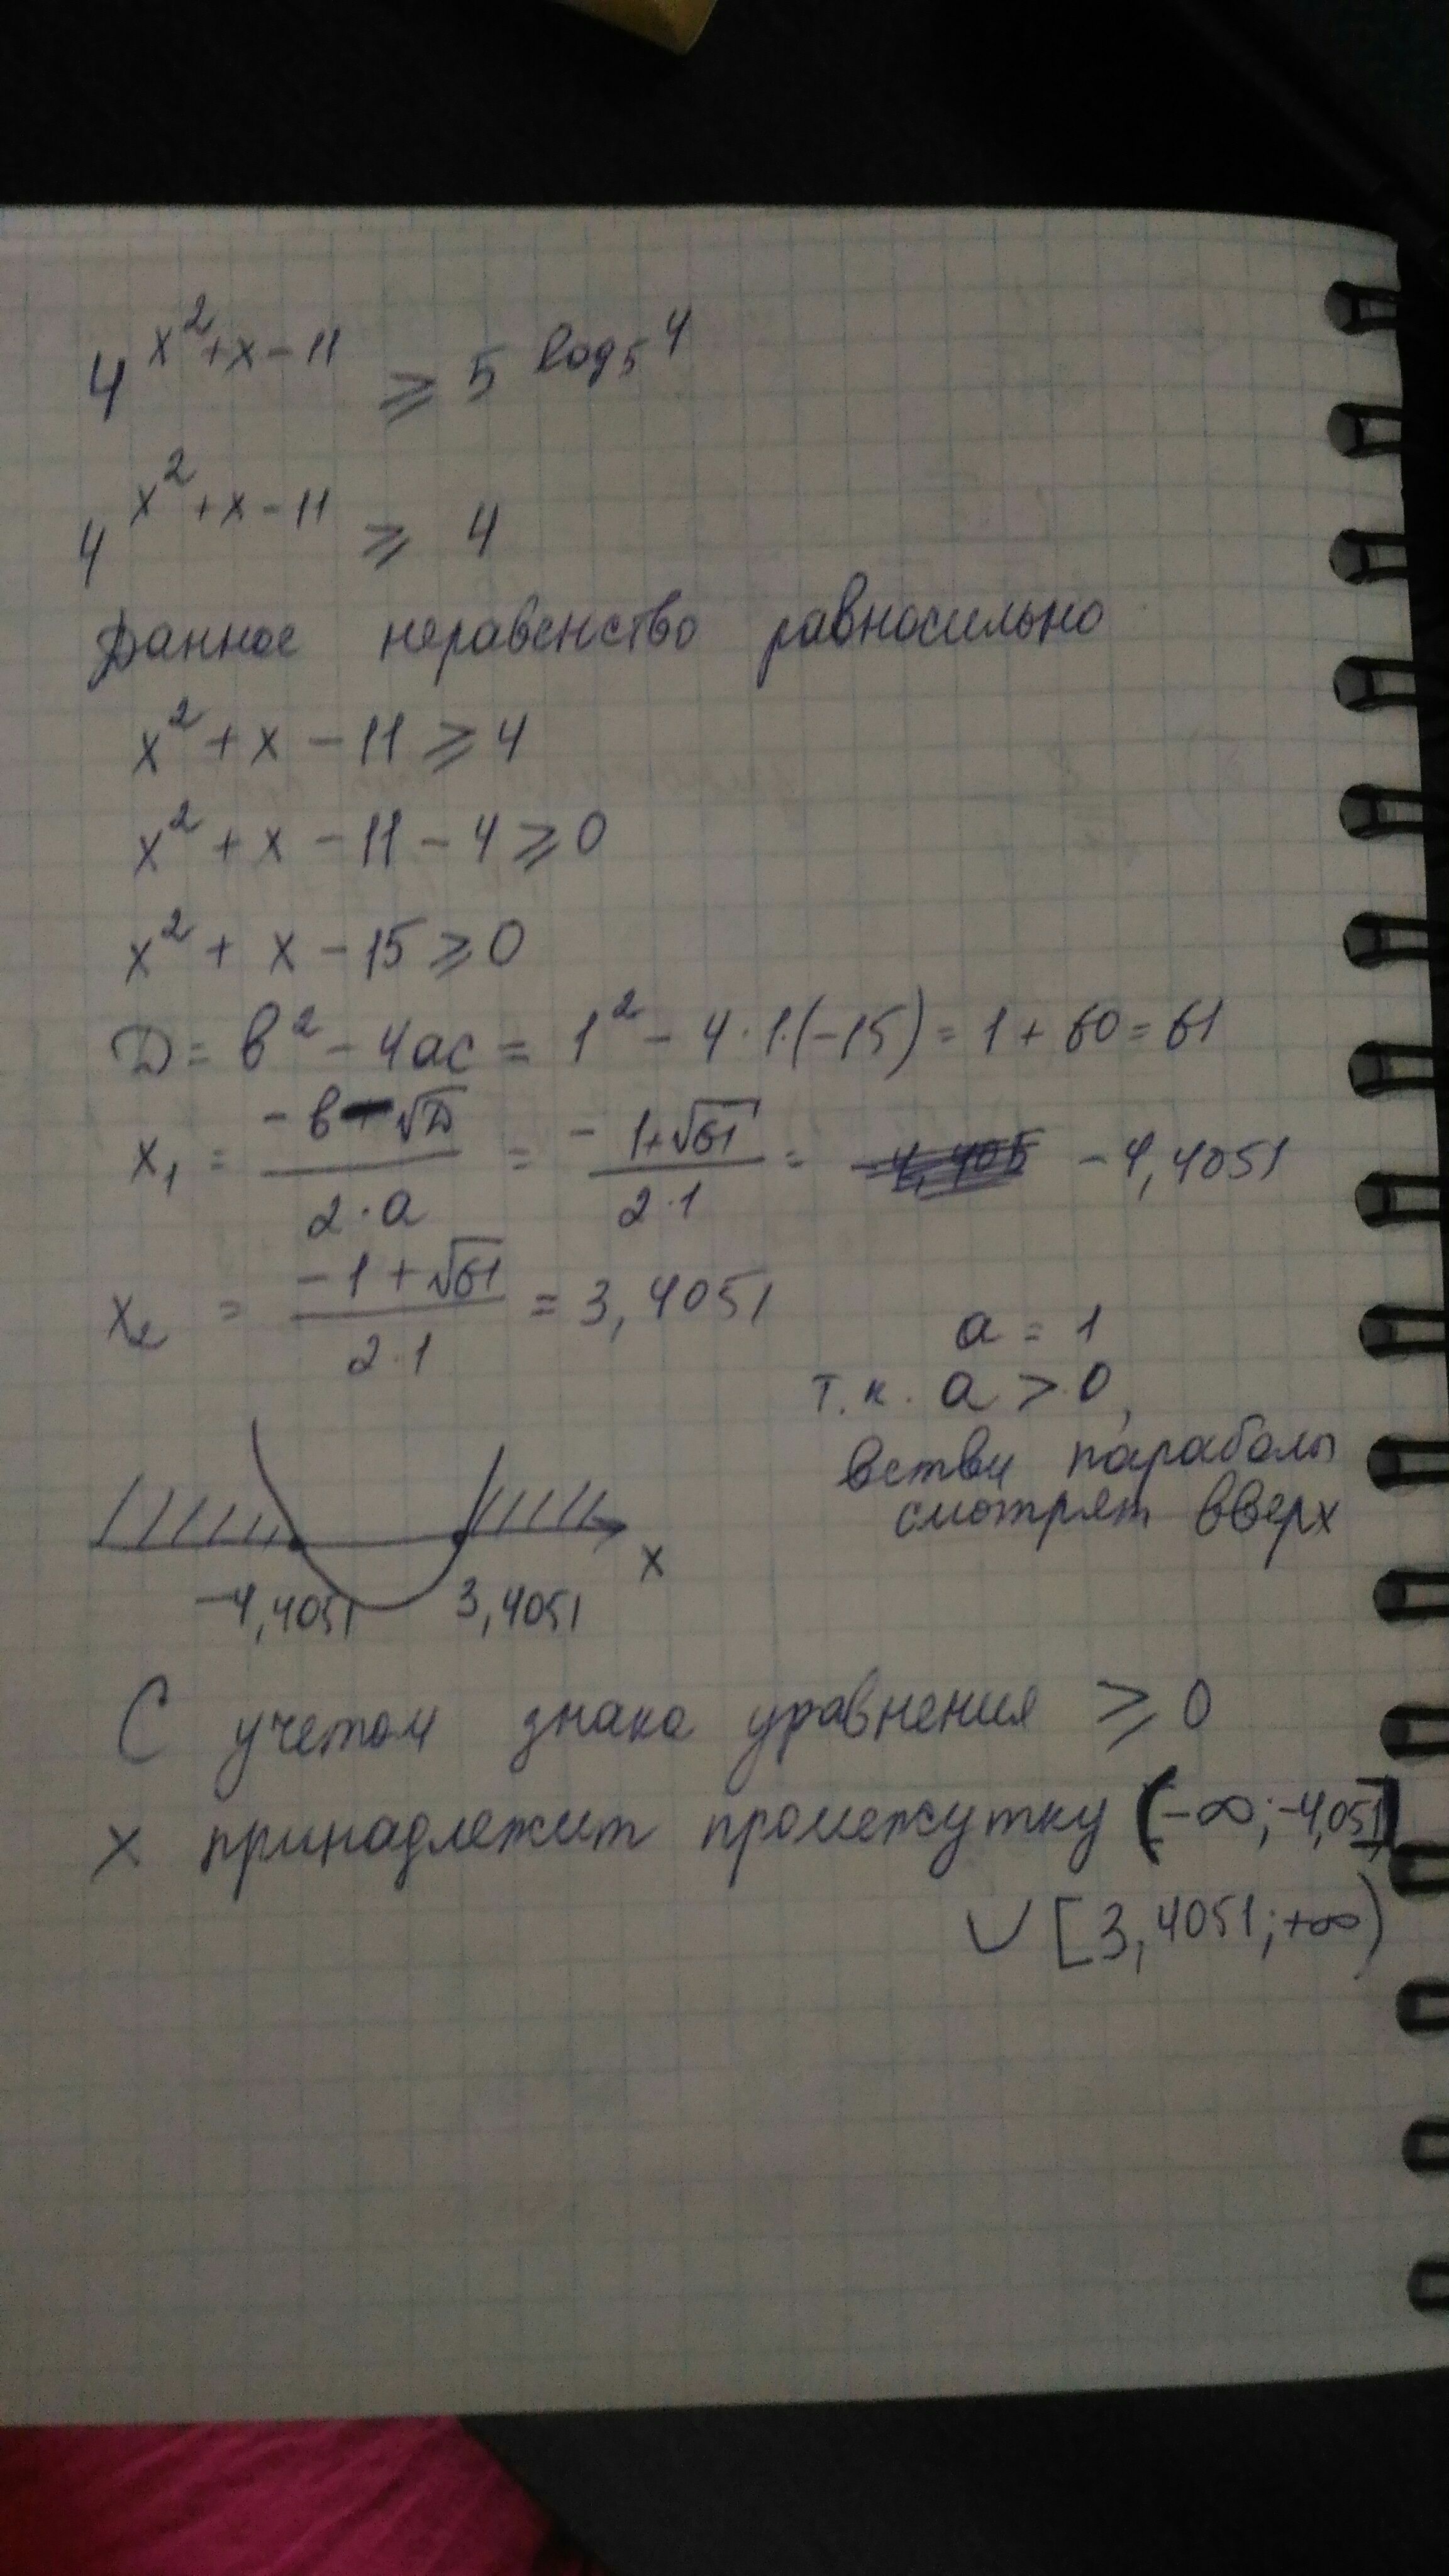 4^{x²+x-11} ⩾ 5^{log₅4}
4^{x²+x-11} ⩾ 4
Данное неравенство равносильно
x² + x - 11 ⩾ 4
x² + x - 11 - 4 ⩾ 0
x² + x - 15 ⩾ 0
Д = в² - 4ac = 1² - 4·1·(-15) = 1 + 60 = 61
x₁ = (-в - √Д)/(2·a) = -(1+√61)/(2·1) = -4,4051
x₂ = (-1+√61)/(2·1) = 3,4051
a = 1
т.к. a > 0,
ветви параболы
смотрят вверх
x
-4,4051 3,4051
С учетом знака уравнения ⩾ 0
x принадлежит промежутку (-∞; -4,051]
∪ [3,4051; +∞)